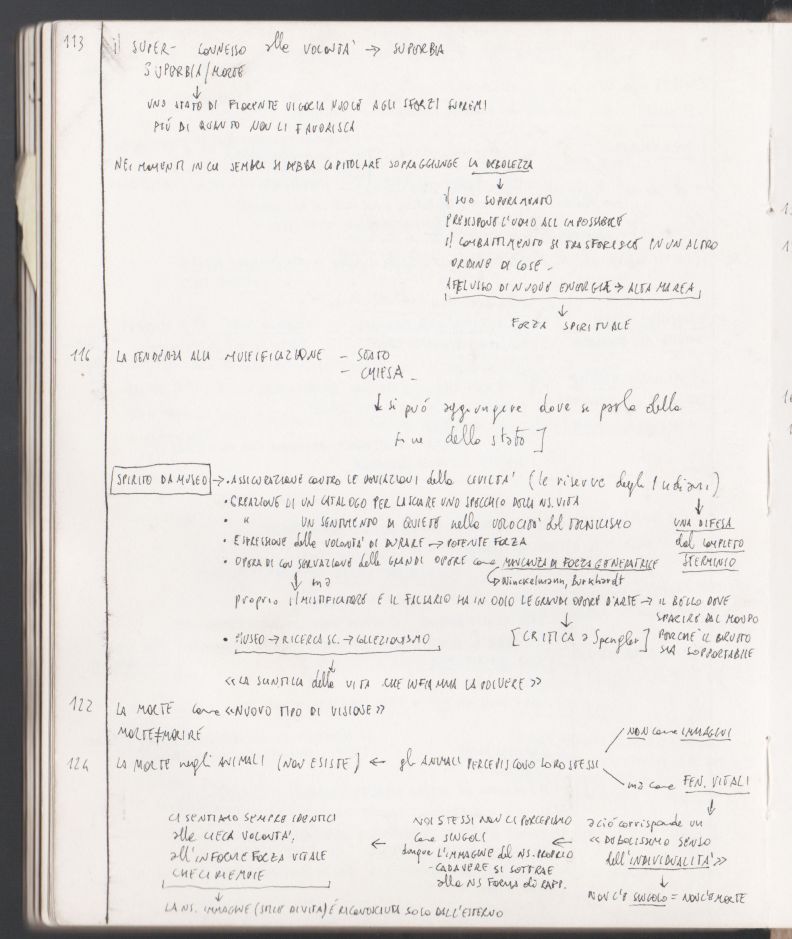 113 il SUPER- CONNESSO alla VOLONTA' → SUPERBIA
SUPERBIA/MORTE
↓
UNO STATO DI FIORENTE VIGORIA NUOCE AGLI SFORZI SUPREMI
PIÚ DI QUANTO NON LI FAVORISCA
NEI MOMENTI IN CUI SEMBRA SI DEBBA CAPITOLARE SOPRAGGIUNGE LA DEBOLEZZA
↓
il SUO SUPERAMENTO
PREDISPONE L'UOMO ALL'IMPOSSIBILE
il COMBATTIMENTO SI TRASFERISCE IN UN ALTRO
ORDINE DI COSE -
AFFLUSSO DI NUOVE ENERGIE → ALTA MAREA
↓
FORZA SPIRITUALE
116 LA TENDENZA ALLA MUSEIFICAZIONE - STATO
- CHIESA -
↓ si può aggiungere dove si parla della
fine dello stato ]
SPIRITO DA MUSEO → • ASSICURAZIONE CONTRO LE DEVIAZIONI della CIVILTA' (le riserve degli Indiani)
• CREAZIONE DI UN CATALOGO PER LASCIARE UNO SPECCHIO DELLA NS. VITA
• " UN SENTIMENTO DI QUIETE nella VELOCITÀ del TECNICISMO
• ESPRESSIONE della VOLONTA' DI DURARE → POTENTE FORZA
• OPERA DI CONSERVAZIONE delle GRANDI OPERE come MANCANZA DI FORZA GENERATRICE
↓
UNA DIFESA
dal COMPLETO
STERMINIO
↓ ma
→ Winckelmann, Burkhardt
proprio il MISTIFICATORE E IL FALSARIO HA IN ODIO LE GRANDI OPERE D'ARTE → IL BELLO DEVE
SPARIRE DAL MONDO
PERCHÉ IL BRUTTO
SIA SOPPORTABILE
↓
[CRITICA a Spengler]
• MUSEO → RICERCA SC. → COLLEZIONISMO
↓
«LA SCINTILLA della VITA CHE INFIAMMA LA POLVERE»
122 LA MORTE come «NUOVO TIPO DI VISIONE»
MORTE≠MORIRE
124 LA MORTE negli ANIMALI (NON ESISTE) ← gli ANIMALI PERCEPISCONO LORO STESSI
NON come IMMAGINI
ma come FEN. VITALI
↓
a ciò corrisponde un
«DEBOLISSIMO SENSO
dell'INDIVIDUALITA'»
↓
NON C'È SINGOLO = NON C'È MORTE
←
NOI STESSI NON CI PERCEPIAMO
come SINGOLI
dunque L'IMMAGINE del NS. PROPRIO
- CADAVERE SI SOTTRAE
alla NS FORMA di RAPP.
←
CI SENTIAMO SEMPRE IDENTICI
alla CIECA VOLONTA',
all'INFORME FORZA VITALE
CHE CI RIEMPIE
↓
LA NS. IMMAGINE (STILE DI VITA) È RICONOSCIUTA SOLO DALL'ESTERNO